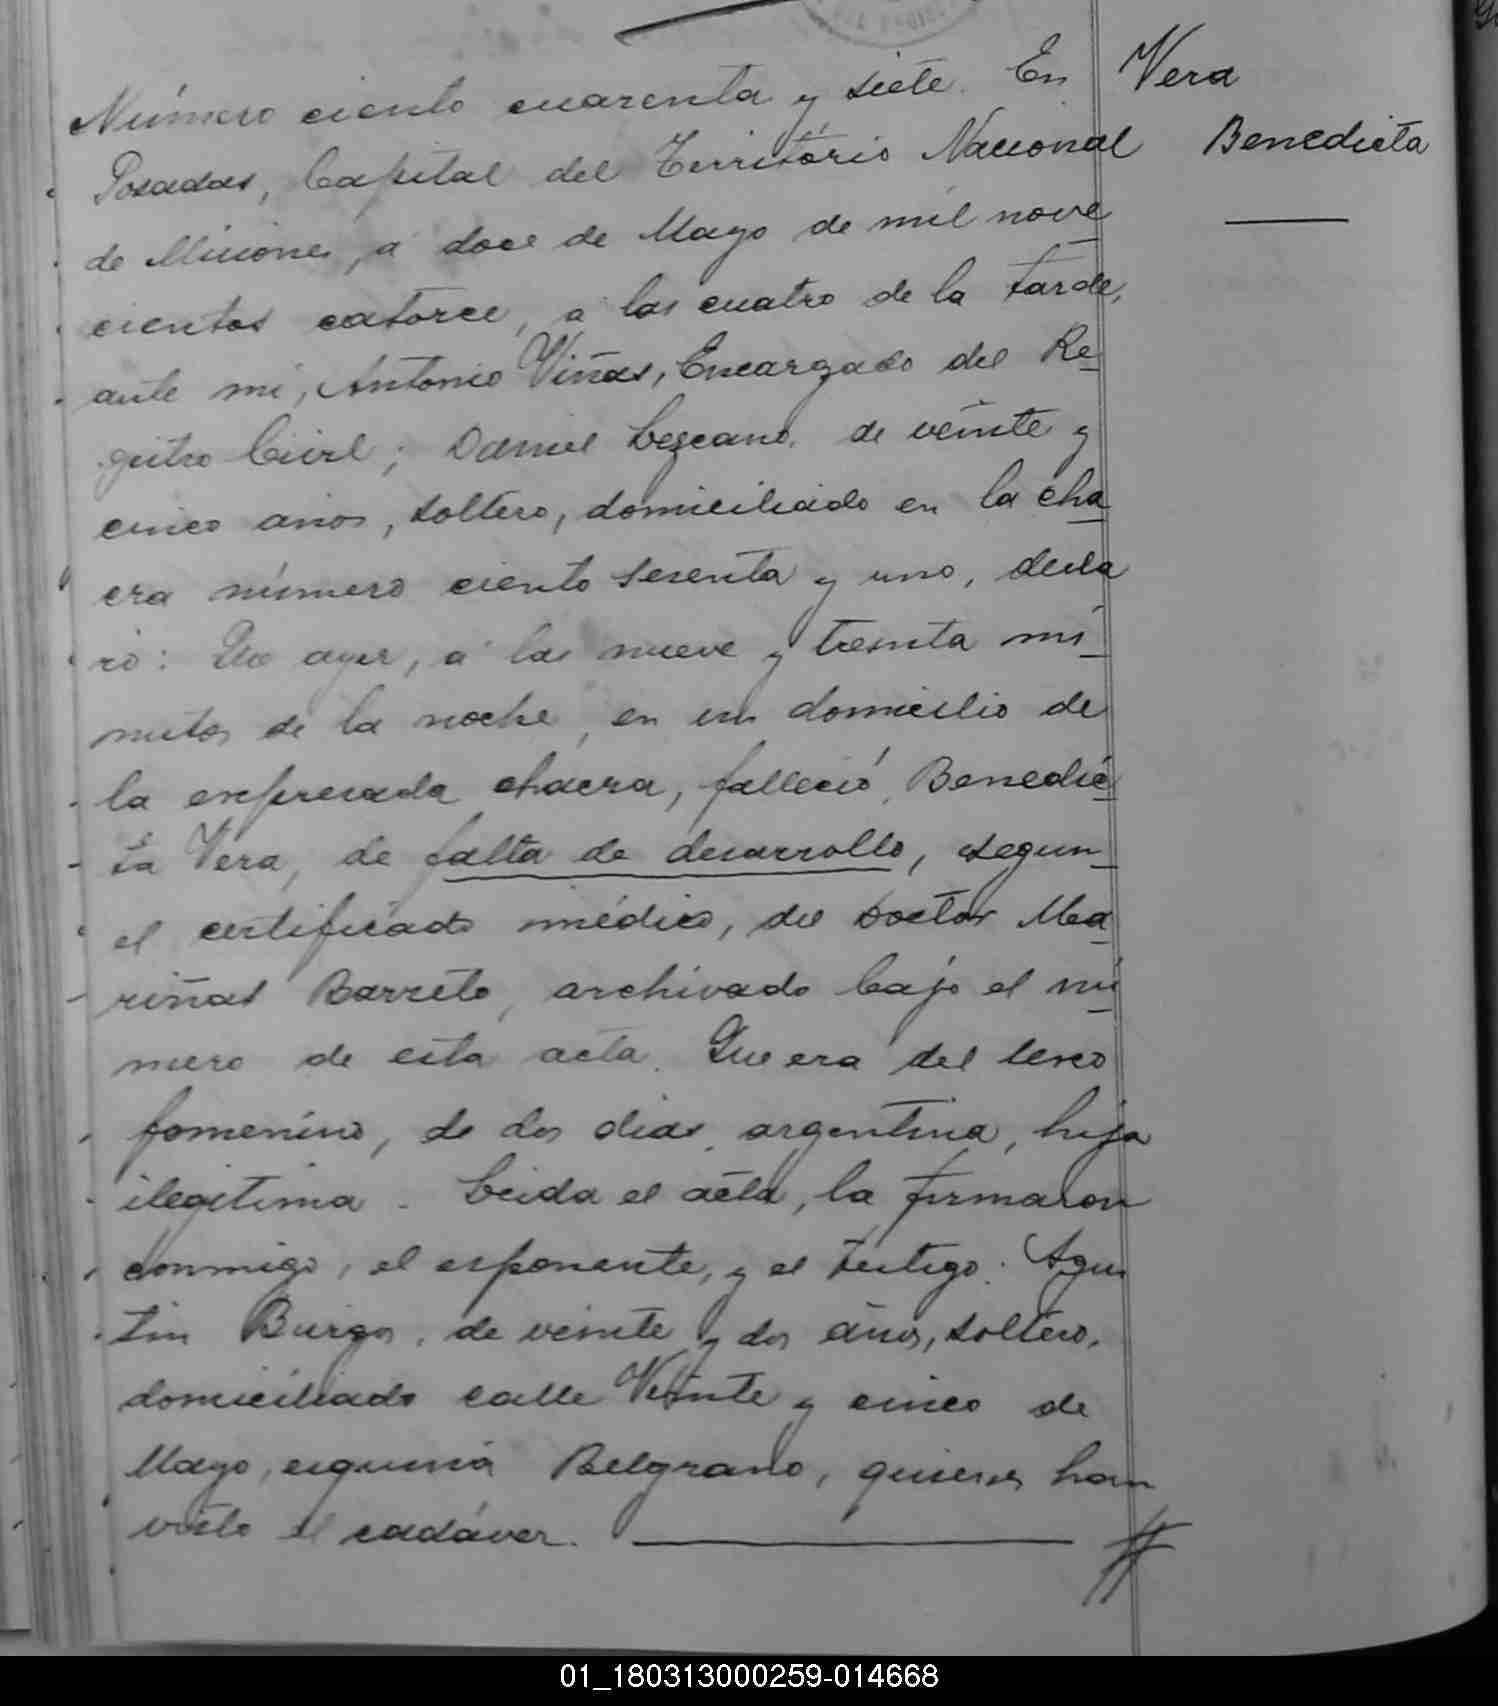 Número ciento cuarenta y siete. En
Vera
Benedicta
Posadas, Capital del Territorio Nacional
de Misiones, á doce de Mayo de mil nove
cientos catorce, a las cuatro de la tarde,
ante mi, Antonio Viñas, Encargado del Re
gistro Civil; Daniel Lezcano, de veinte y
cinco años, soltero, domiciliado en la cha
cra número ciento sesenta y uno, decla
ró: Que ayer, á las nueve y treinta mi
nutos de la noche, en un domicilio de
la expresada chacra, falleció, Benedic
ta Vera, de falta de desarrollo, segun
el certificado médico, del Doctor Ma
riñas Barreto, archivado bajo el nú
mero de esta acta. Que era del sexo
femenino, de dos dias, argentina, hija
ilegitima. Leida el acta, la firmaron
conmigo, el exponente, y el testigo: Agus
tin Burgos, de veinte y dos años, soltero,
domiciliado calle Veinte y cinco de
Mayo, esquina Belgrano, quienes han
visto el cadáver.
01_180313000259-014668